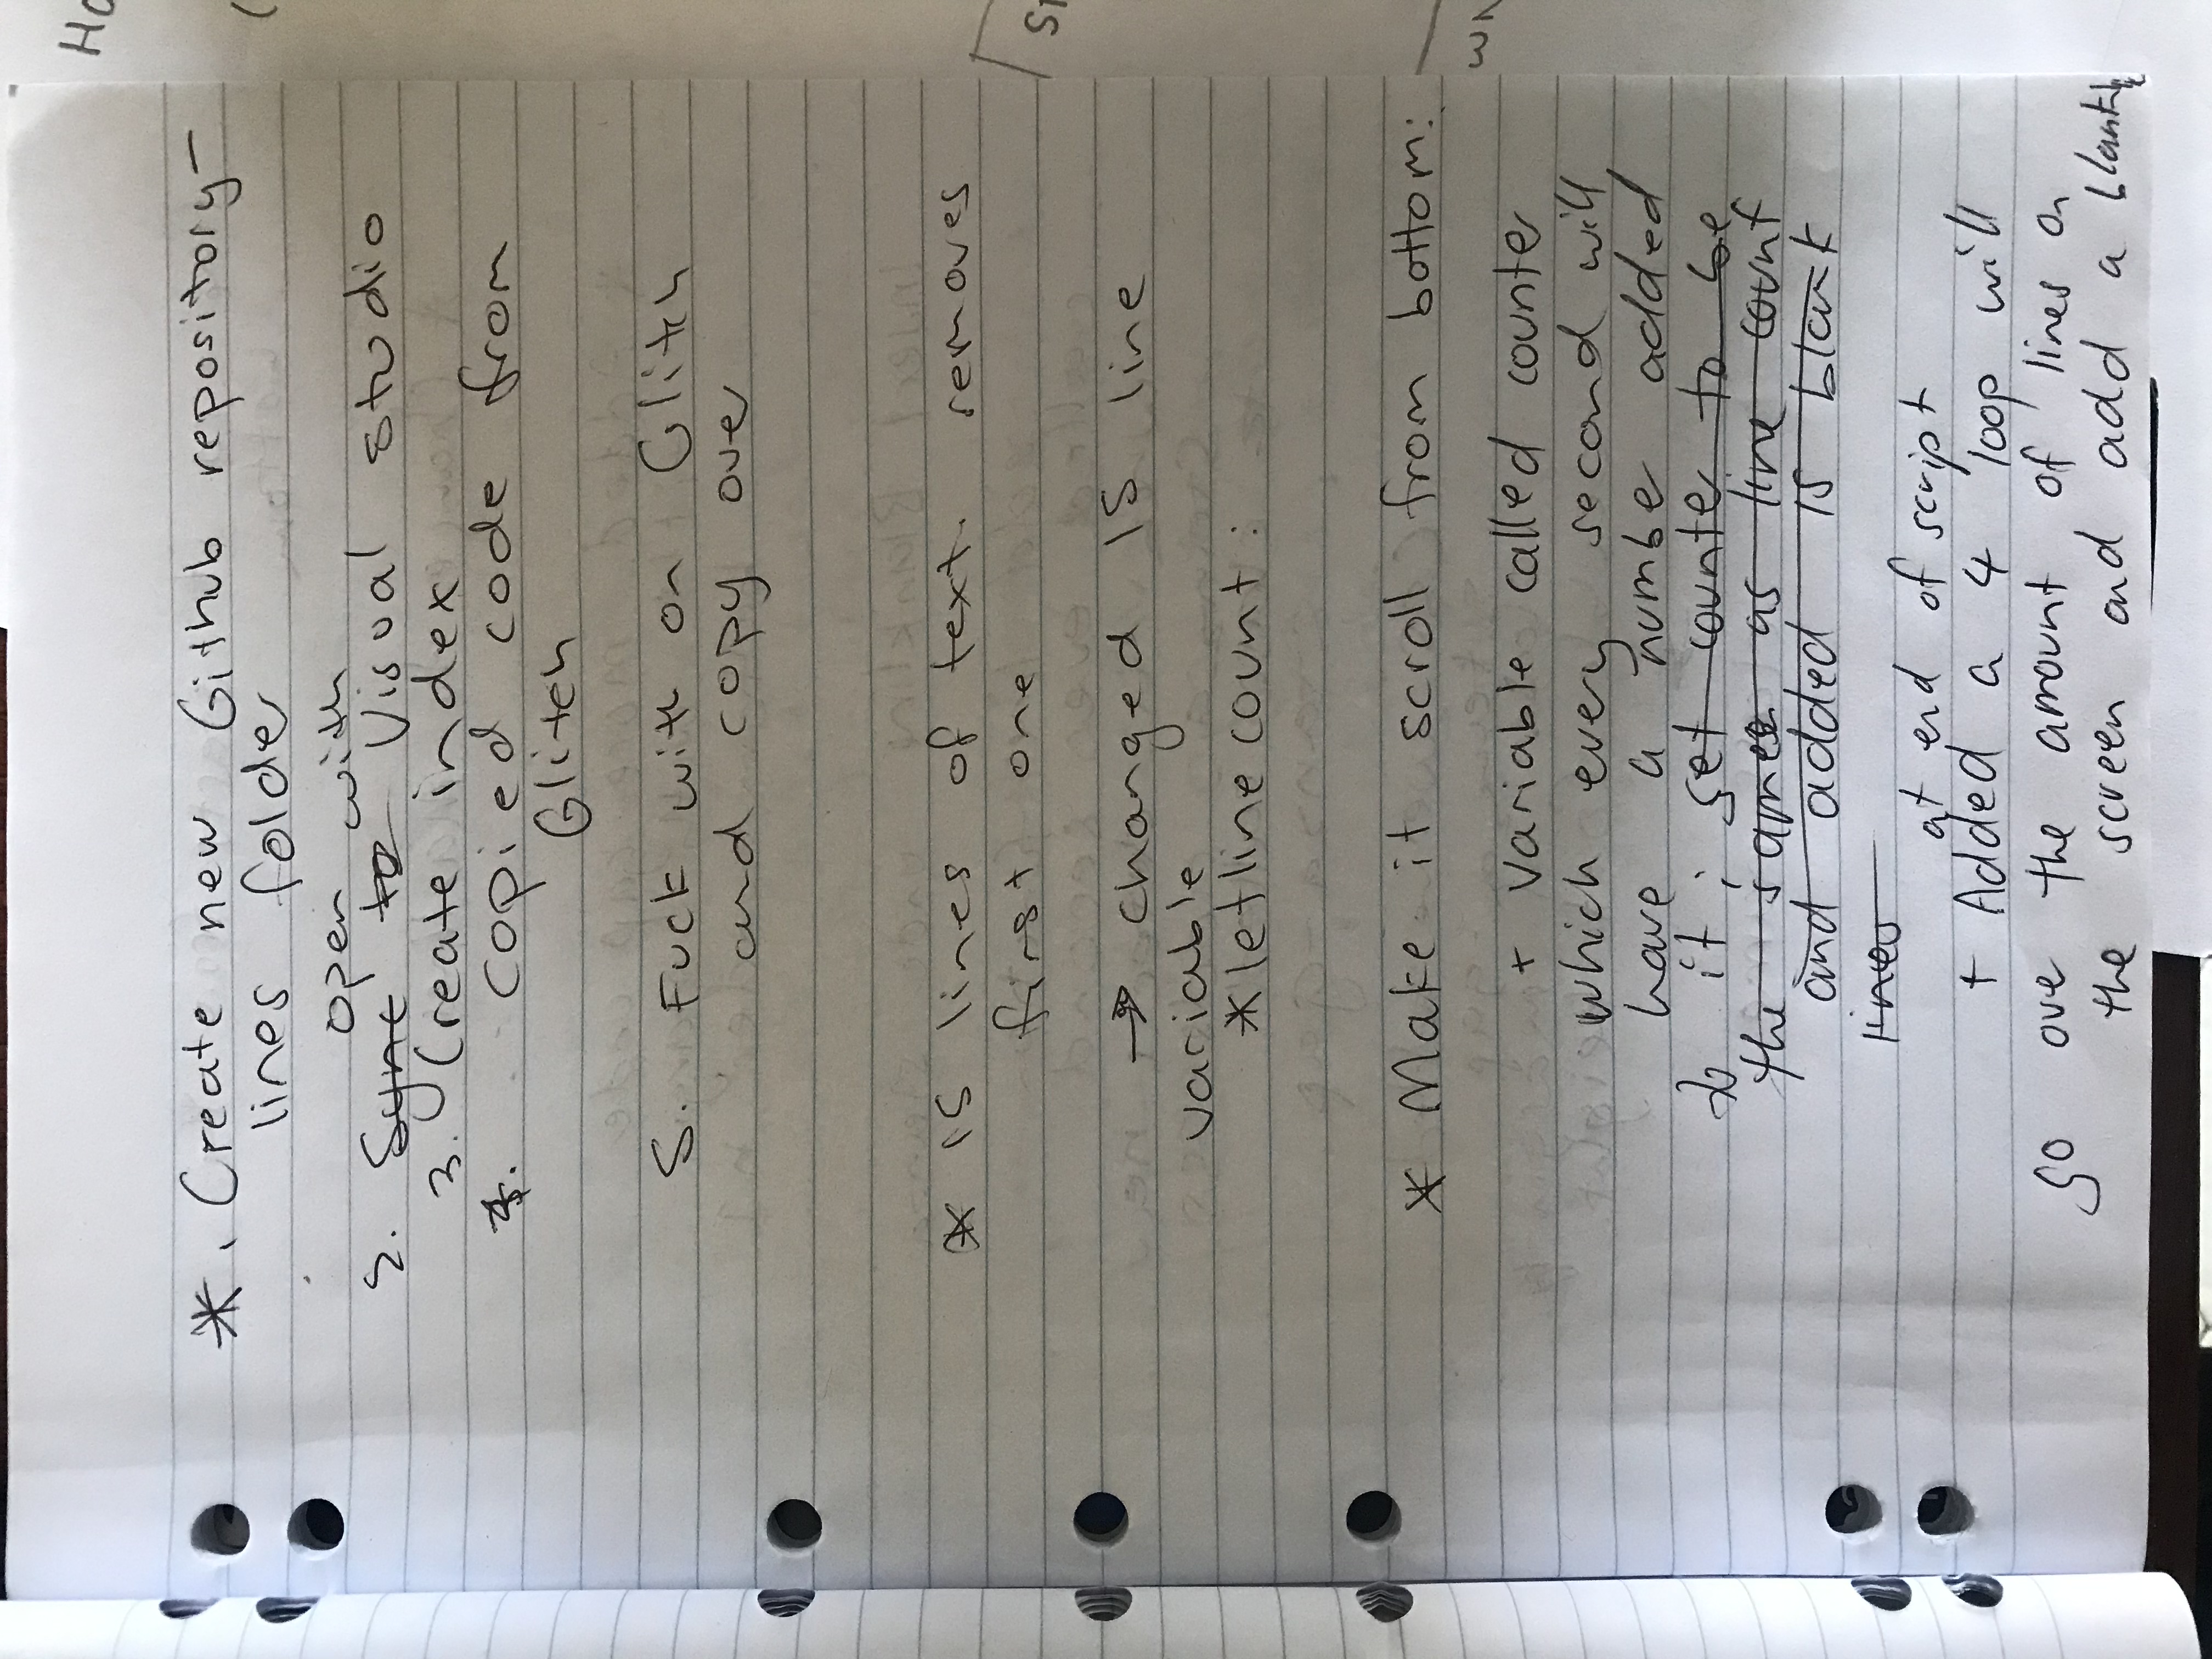 *. Create new Github repository-
lines folder
open with
2. Sync to Visual studio
3. Create index
4. copied code from
Glitch
5. Fuck with on Glitch
and copy over
* 15 lines of text. removes
first one
→ changed 15 line
variable
* let line count :
* Make it scroll from bottom:
+ variable called counter
which every second will
have a number added
to it ; set counter to be
the same as line count
and added 15 blank
lines
at end of script
+ Added a 4 loop will
go over the amount of lines on
the screen and add a blank
Ho
(
St
WN